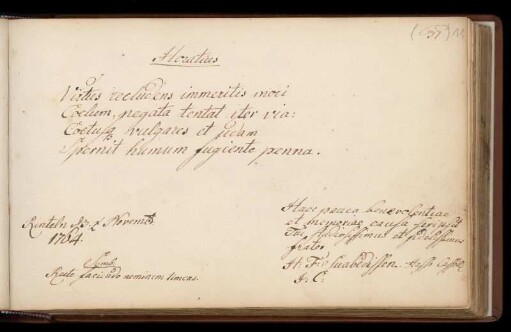 (37)
Horatius
Virtus recludens immeritis mori
Coelum, negata tentat iter via:
Coetusq vulgares et udam
Spernit humum fugiente penna.
Rinteln d. Novemb
1764.
Symb.
Recte faciendo neminem timeas.
Haec pauca benevolentiae
et memoriae causa scripsit
Tibi studiosissimus et fidelissimus
frater
Suabedissen. Hasso Cassel.